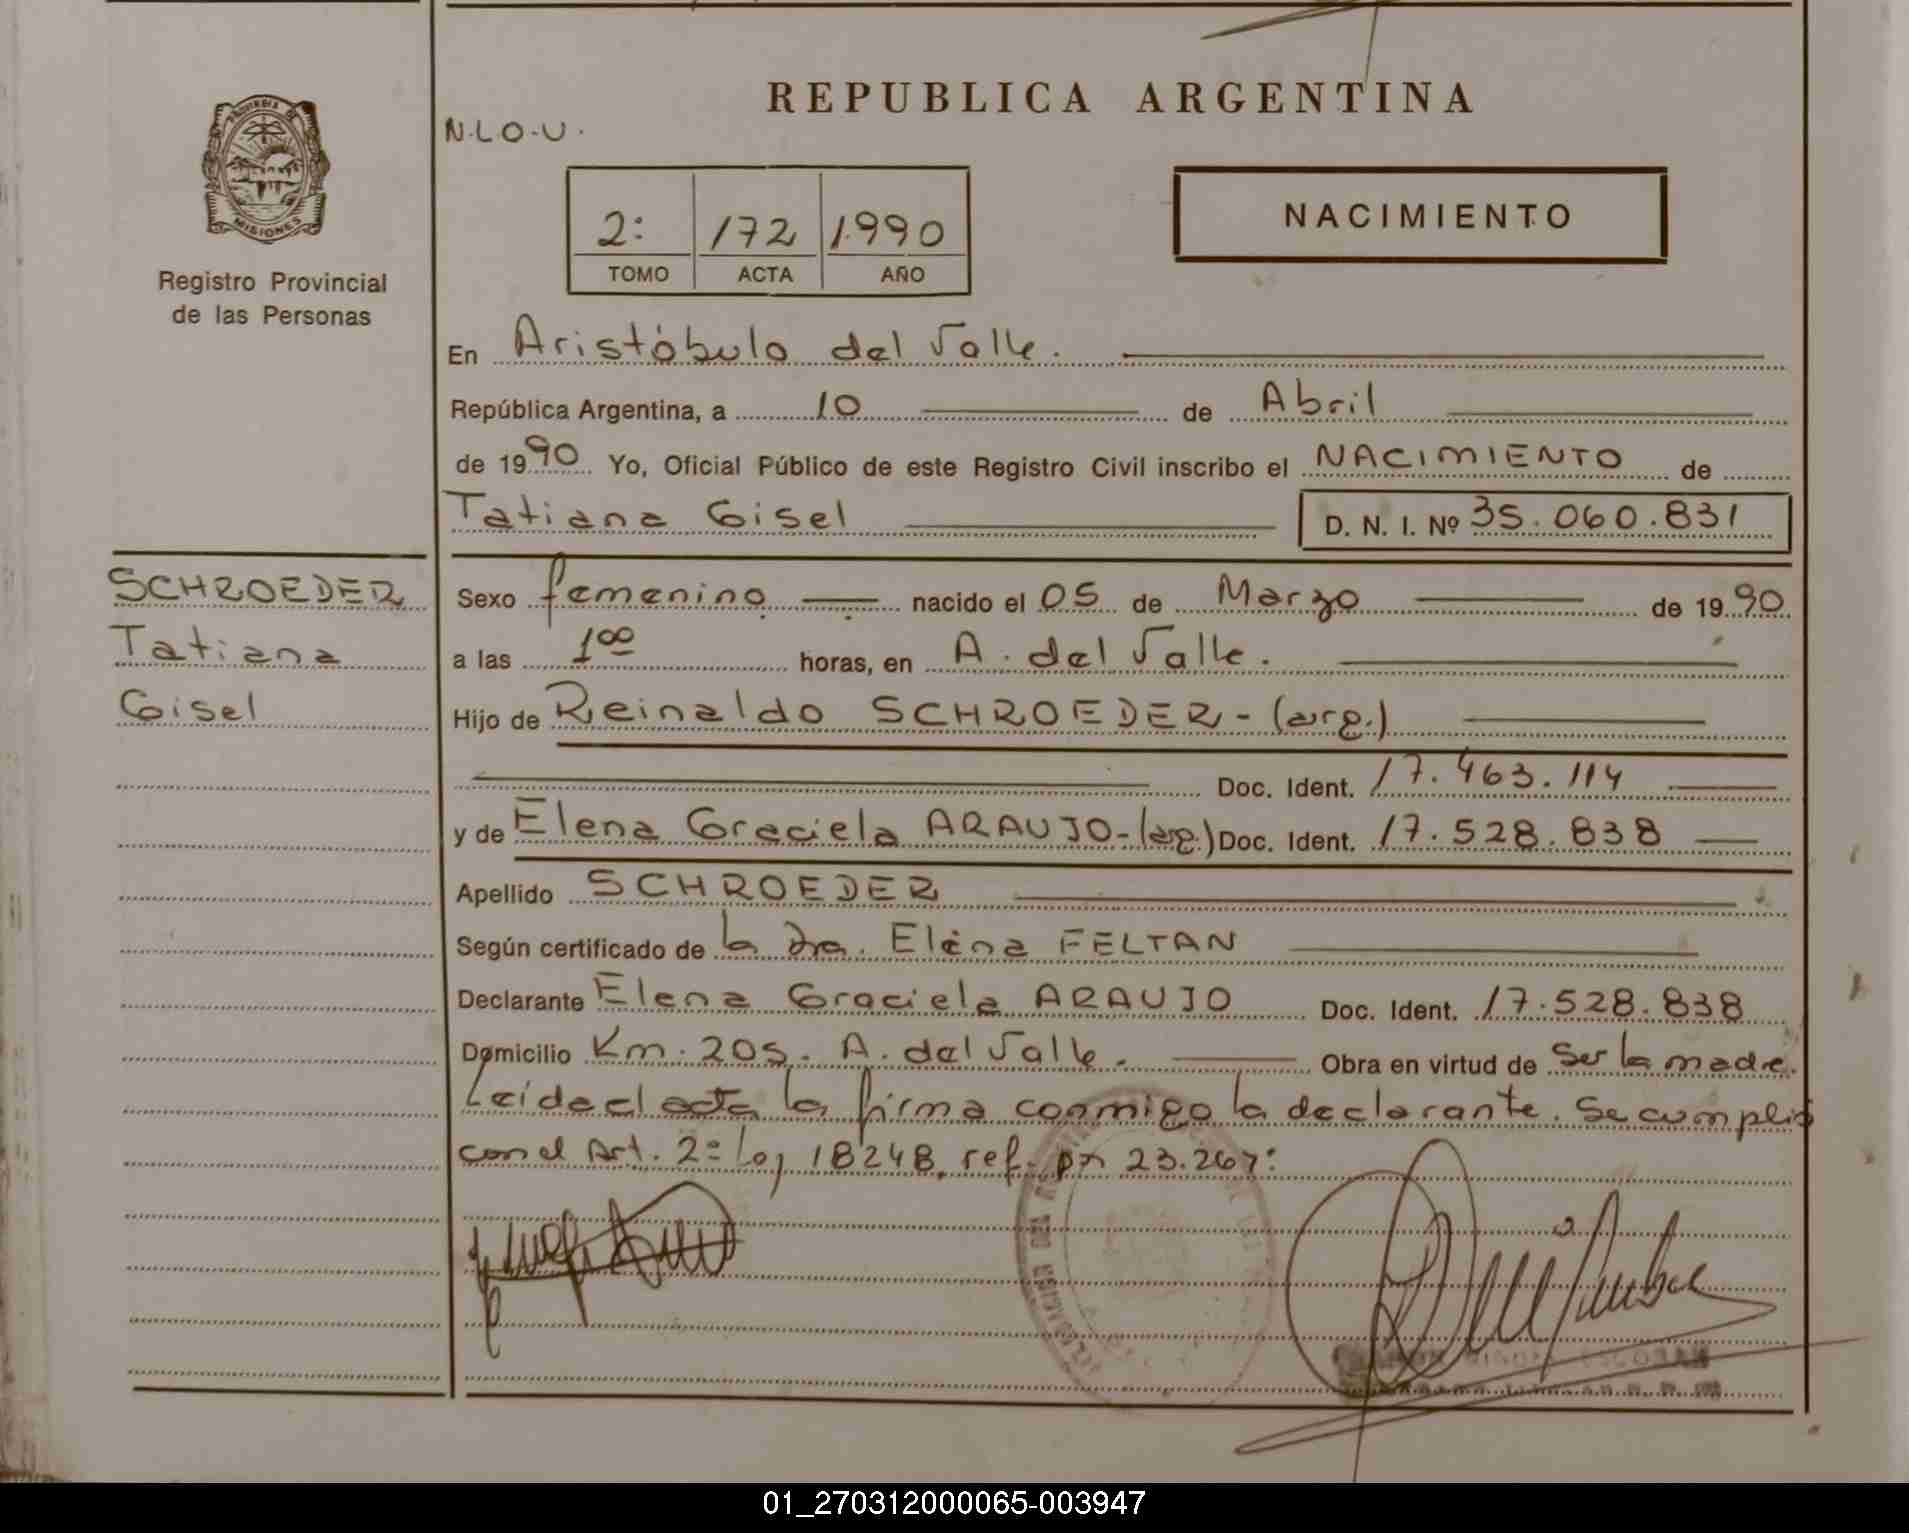 REPUBLICA ARGENTINA
N.L.O.U.
PROVINCIA DE
MISIONES
Registro Provincial
de las Personas
2: 172 1990
TOMO ACTA AÑO
NACIMIENTO
En Aristóbulo del Valle.
República Argentina, a 10 de Abril
de 1990 Yo, Oficial Público de este Registro Civil inscribo el NACIMIENTO de
Tatiana Gisel D. N. I. Nº 35.060.831
SCHROEDER
Tatiana
Gisel
Sexo femenino nacido el 05 de Marzo de 1990
a las 1 00 horas, en A. del Valle.
Hijo de Reinaldo SCHROEDER - (arg.)
Doc. Ident. 17.463.114
y de Elena Graciela ARAUJO - (arg.) Doc. Ident. 17.528.838
Apellido SCHROEDER
Según certificado de la Dra. Elena FELTAN
Declarante Elena Graciela ARAUJO Doc. Ident. 17.528.838
Domicilio Km. 205. A. del Valle. Obra en virtud de Ser la madre.
Leída el acta la firma conmigo la declarante. Se cumplió
con el Art. 2º ley 18248, ref. por 23.264:
ESCOBAR
01_270312000065-003947